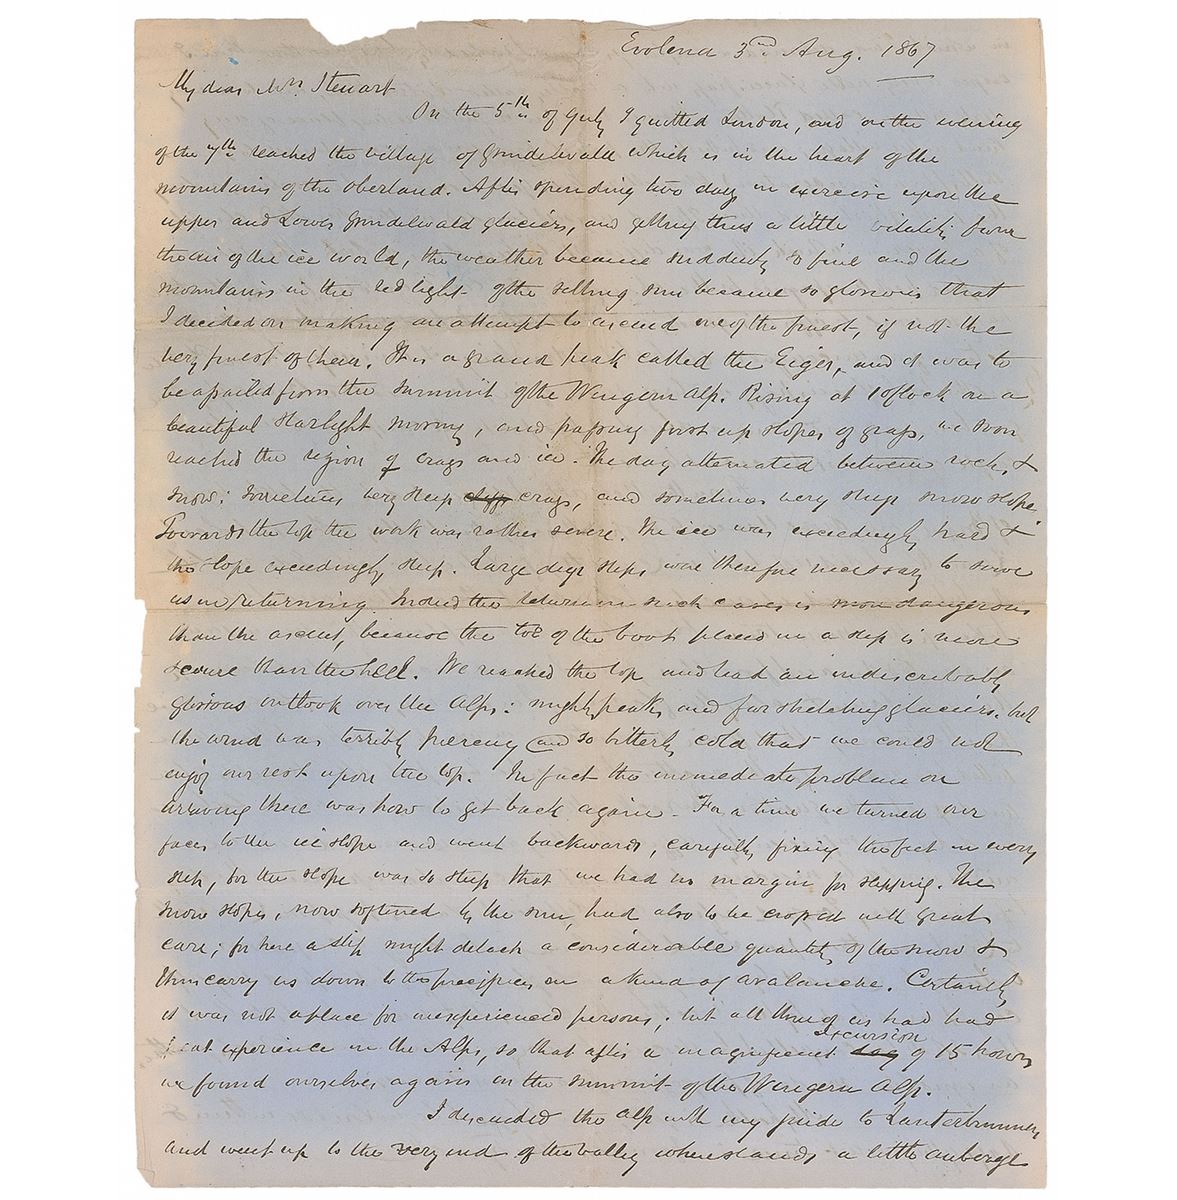 Evolena 3rd Aug. 1867
My dear Mrs Steuart
On the 5th of July I quitted London, and on the evening
of the 7th reached the village of Grindelwald which is in the heart of the
mountains of the Oberland. After spending two days in exercise upon the
upper and Lower Grindelwald glaciers, and getting thus a little vitality from
the air of the ice world, the weather became suddenly so fine and the
mountains in the red light of the setting sun became so glorious that
I decided on making an attempt to ascend one of the finest, if not the
very finest of them. It is a grand peak called the Eiger, and it was to
be assailed from the summit of the Wengern Alp. Rising at 1 o'clock on a
beautiful starlight morning, and passing first up slopes of grass, we soon
reached the region of crags and ice. The day alternated between rock, &
snow; sometimes very steep cliffs crags, and sometimes very steep snow slope.
Towards the top the work was rather severe. The ice was exceedingly hard &
the slope exceedingly steep. Large deep steps were therefore necessary to serve
us in returning. Indeed the return in such cases is more dangerous
than the ascent, because the toe of the boot placed in a step is more
secure than the heel. We reached the top and had an indescribably
glorious outlook over the Alps: mighty peaks and far stretching glaciers. but
the wind was terribly piercing and so bitterly cold that we could not
enjoy our rest upon the top. In fact the immediate problem on
arriving there was how to get back again. For a time we turned our
faces to the ice slope and went backwards, carefully fixing the feet in every
step, for the slope was so steep that we had no margin for slipping. The
snow slopes, now softened by the sun, had also to be crossed with great
care; for here a slip might detach a considerable quantity of the snow &
thus carry us down to the precipices on a kind of avalanche. Certainly
it was not a place for inexperienced persons; but all three of us had had
great experience in the Alps, so that after a magnificent day excursion of 15 hours
we found ourselves again on the summit of the Wengern Alp.
I descended the Alp with my guide to Lauterbrunnen
and went up to the very end of the valley where stands a little auberge